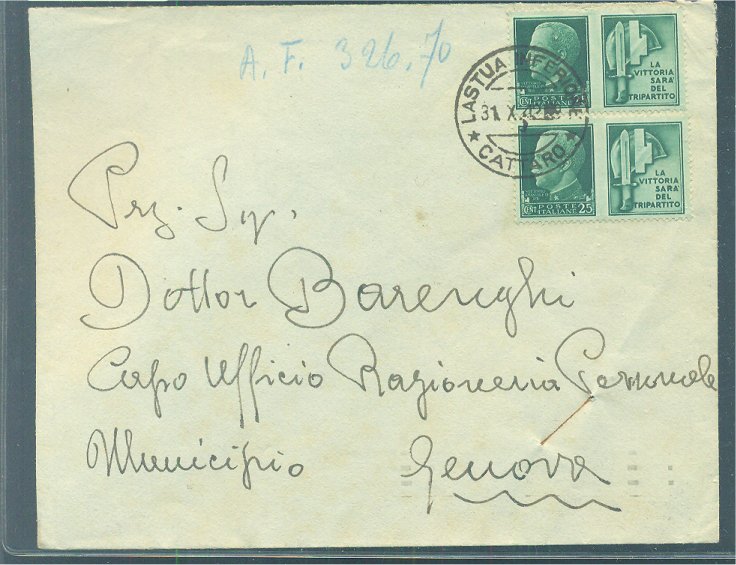 A. F. 326.70
LASTUA INFERIORE
31. X. 42
CATTARO
CENT 25
POSTE
ITALIANE
LA
VITTORIA
SARÀ
DEL
TRIPARTITO
CENT 25
POSTE
ITALIANE
LA
VITTORIA
SARÀ
DEL
TRIPARTITO
Prg. Sig.
Dottor Barenghi
Capo Ufficio Ragioneria Personale
Municipio Genova